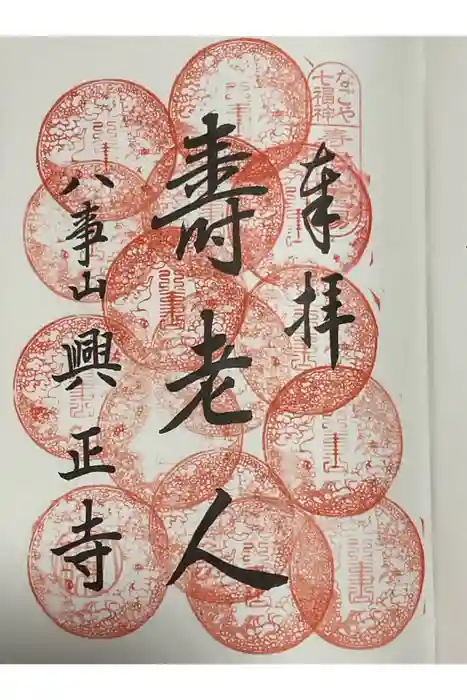 なごや
七福神
奉拝
壽老人
八事山興正寺